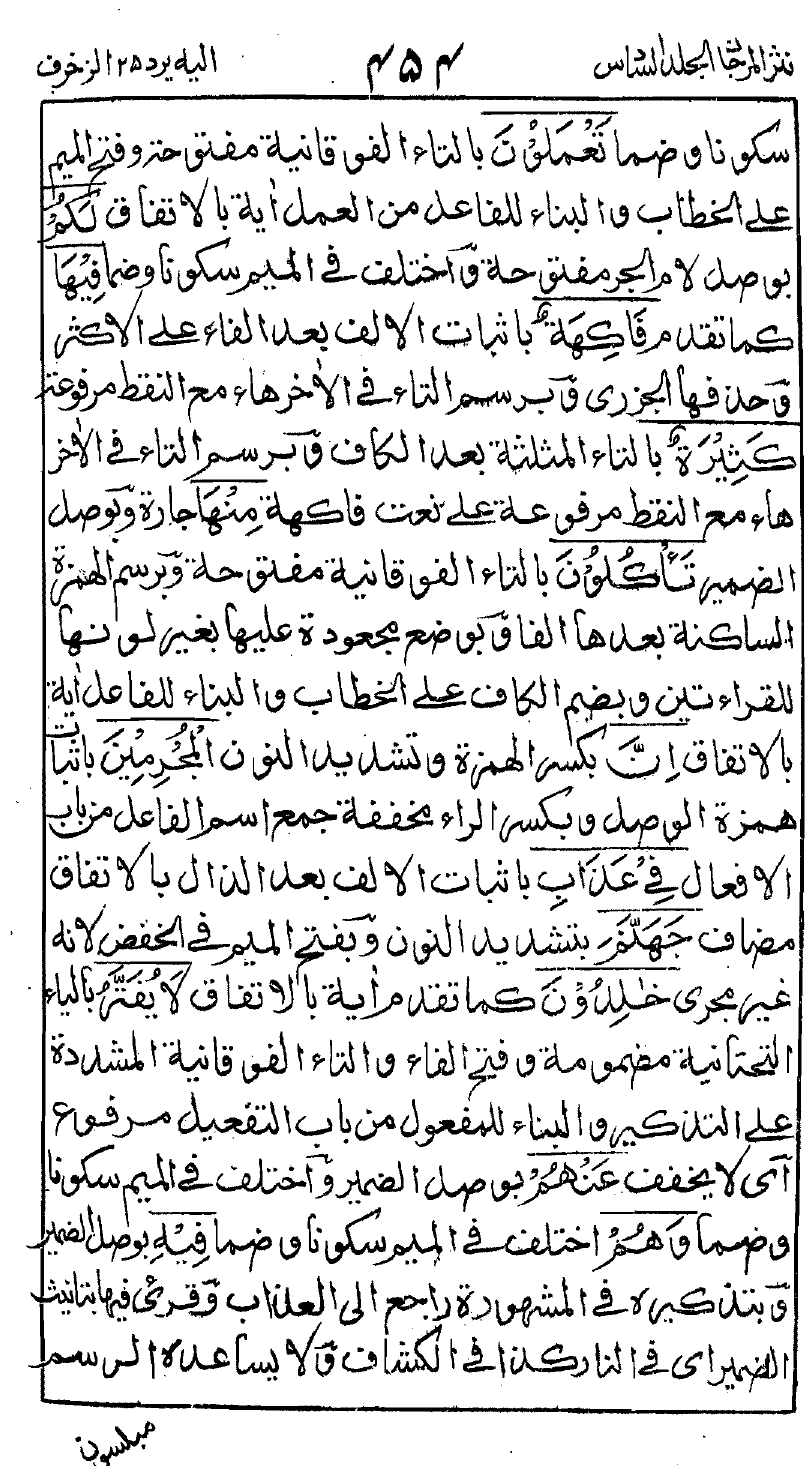 نثر المرجان المجلد السادس ۴۵۴ اليه يرد ۲۵ الزخرف
سكونا وضما تَعْمَلُوْنَ بالتاء الفوقانية مفتوحة وفتح الميم
على الخطاب والبناء للفاعل من العمل أية بالاتفاق لَكُمْ
بوصل لام الجر مفتوحة وٓاختلف في الميم سكونا وضما فِيْهَا
كما تقدم فَاكِهَةٌ باثبات الالف بعد الفاء على الاكثر
وٓحذفها الجزرى وٓبرسم التاء في الأخر هاء مع النقط مرفوعة
كَثِيْرَةٌ بالتاء المثلثة بعد الكاف وٓبرسم التاء في الأخر
هاء مع النقط مرفوعة على نعت فاكهة مِنْهَا جارة وٓبوصل
الضمير تَأْكُلُوْنَ بالتاء الفوقانية مفتوحة وٓبرسم الهمزة
الساكنة بعدها الفا وٓبوضع مجعودة عليها بغير لونها
للقراءتين وبضم الكاف على الخطاب والبناء للفاعل أية
بالاتفاق اِنَّ بكسر الهمزة وتشديد النون الْمُجْرِمِيْنَ باثبات
همزة الوصل وبكسر الراء مخففة جمع اسم الفاعل من باب
الافعال فِيْ عَذَابِ باثبات الالف بعد الذال بالاتفاق
مضاف جَهَنَّمَ بتشديد النون وٓبفتح الميم في الخفض لانه
غير مجرى خٰلِدُوْنَ كما تقدم أية بالاتفاق لَا يُفَتَّرُ بالياء
التحتانية مضمومة وفتح الفاء والتاء الفوقانية المشددة
على التذكير والبناء للمفعول من باب التفعيل مرفوع
آى لا يخفف عَنْهُمْ بوصل الضمير وٓاختلف في الميم سكونا
وضما وَهُمْ اختلف في الميم سكونا وضما فِيْهِ بوصل الضمير
وٓبتذكيره في المشهورة راجع الى العذاب وٓقرئ فيها بتانيث
الضمير اى في النار كذا في الكشاف وٓلا يساعده الرسم
مبلسون